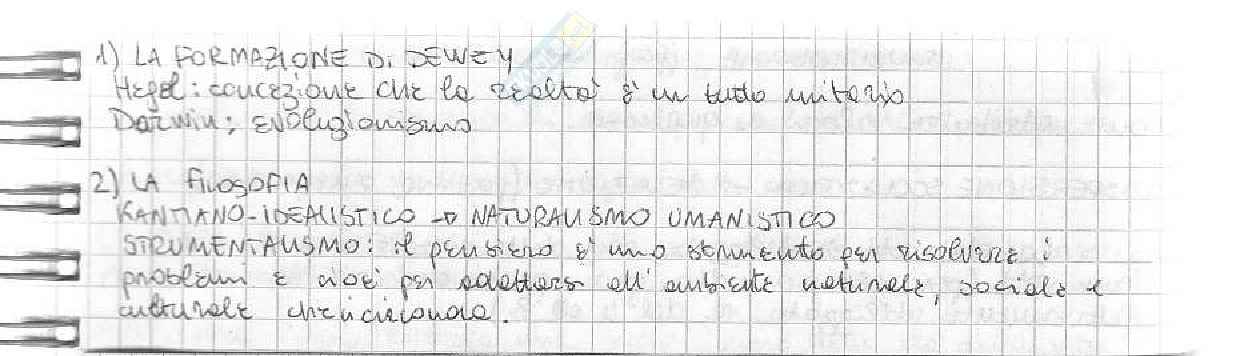 1) LA FORMAZIONE DI DEWEY
Hegel: concezione che la realtà è un tutto unitario
Darwin: evoluzionismo
2) LA FILOSOFIA
KANTIANO-IDEALISTICO → NATURALISMO UMANISTICO
STRUMENTALISMO: il pensiero è uno strumento per risolvere i
problemi e cioè per adattarsi all'ambiente naturale, sociale e
culturale circostante.